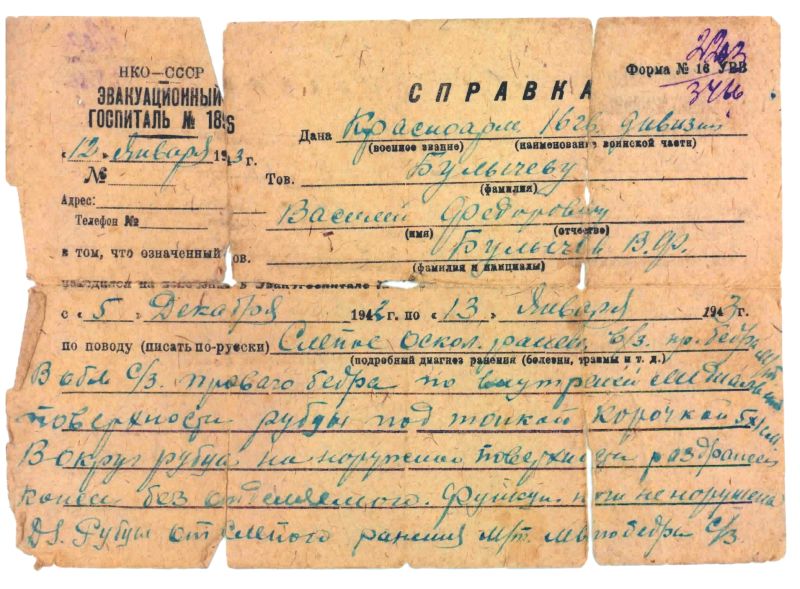 Форма № 16 УВВ
3466
НКО—СССР
ЭВАКУАЦИОННЫЙ
ГОСПИТАЛЬ №
«12» Января 1943 г.
№
Адрес:
Телефон №
СПРАВКА
Дана Красноарм 16 гв. дивизии
(военное звание) (наименование воинской части)
Тов. Булычеву
(фамилия)
Василий Федорович
(имя) (отчество)
в том, что означенный тов. Булычев В.Ф.
(фамилия и инициалы)
находился на излечении в Эвакугоспитале №
с «5» Декабря 1942 г. по «13» Января 1943 г.
по поводу (писать по-русски) Слепое оскол. ранен. в/з пр. бедра
(подробный диагноз ранения (болезни, травмы и т. д.)
В обл с/з. праваго бедра по внутреней
поверхности рубцы под тонкой корочкой
Вокруг рубца на наружной поверхности
кожи без отделяемого. ноги не нарушена
DS. Рубцы от слепого ранения м/т. бедра с/з.